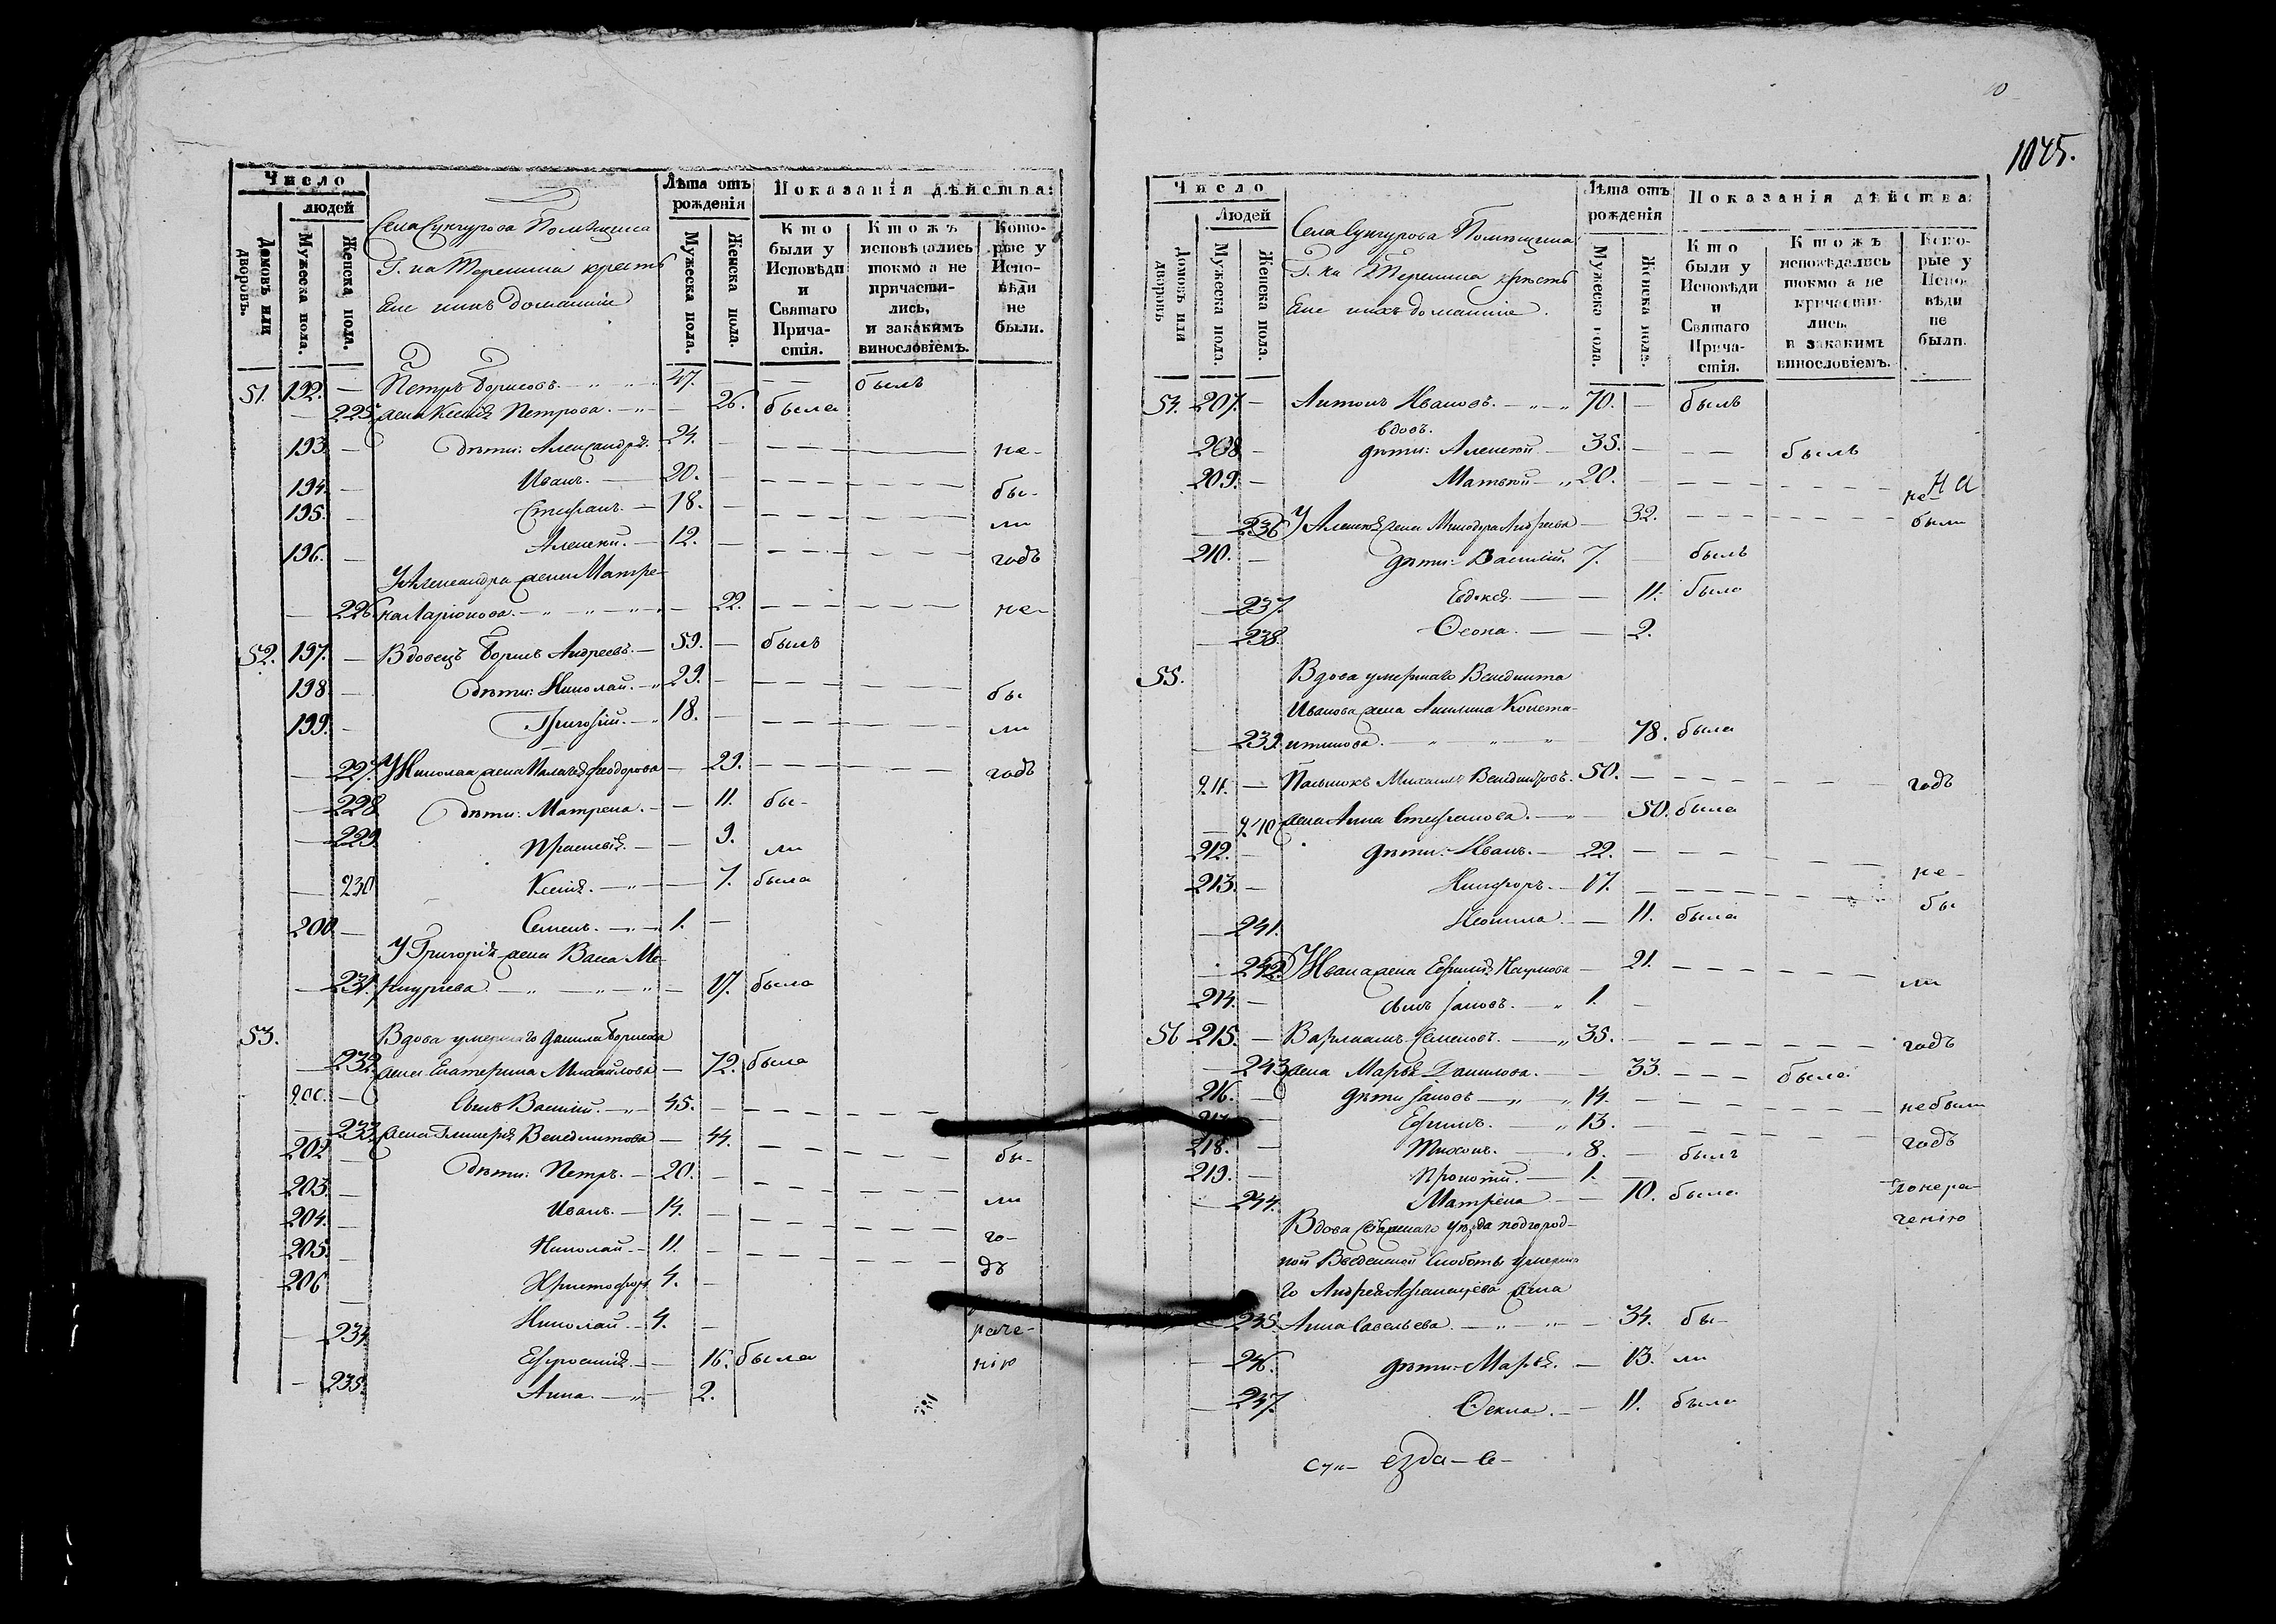 Число
людей
Домовъ или дворовъ.
Мужеска пола.
Женска пола.
Села Сунгурова Помѣщика
Г. на Терешина крестъ
Ене нихъ домашнiе
Лѣта отъ рожденія
Мужеска пола.
Женска пола.
Показанія дѣйства:
Кто были у Исповѣди и Святаго Прича- стія.
Ктожъ исповѣдались токмо а не причасти- лись, и закакимъ винословіемъ.
Кото- рые у Испо- вѣди не были.
51. 192. — Петръ Борисовъ. 47. — былъ
— 225. жена Ксенія Петрова. — 26. была
193. — дѣти: Александръ. 24. — не-
194. — Иванъ. 20. — бы-
195. — Стефанъ. 18. — ли
196. — Алексѣй. 12. — годъ
У Александра жена Матре-
— 226. на Ларіонова. — 22. не-
52. 197. — Вдовецъ Борисъ Андреевъ. 59. — былъ
198. — дѣти: Николай. 29. — бы
199. — Григорій. 18. — ли
— 227. У Николая жена Пелагея Феодорова — 29. годъ
— 228 дѣти: Матрена. — 11. бы-
— 229. Праскевія. — 9. ли
— 230 Ксенія. — 7. была
200. — Семенъ. 1. —
У Григорія жена Васса Ме-
— 231. — 17. была
53. Вдова умершаго Данила Борисова
— 232. жена Екатерина Михайлова — 72. была
200. — сынъ Василій. 45. —
— 233. жена Гликерія Венедиктова — 44.
202 — дѣти: Петръ. 20. — бы-
203. — Иванъ. 14. — ли
204. — Николай. 11. — го-
205. — Христофоръ 4. — дъ
206 — Николай. 4. —
— 234. Евфросинія. — 16. была
раче-
нію
— 235. Анна. — 2.
1045.
Число
Людей
Домовъ или дворовъ
Мужеска пола.
Женска пола.
Села Сунгурова Помѣщика
Г. на Терешина крестъ
Ене нихъ домашнiе.
Лѣта отъ рожденія
Мужеска пола.
Женска пола.
Показанія дѣйства:
Кто были у Исповѣди и Святаго Прича- стія.
Ктожъ исповѣдались токмо а не причасти- лись, и закакимъ винословіемъ.
Кото- рые у Испо- вѣди не были.
54. 207. — Антонъ Ивановъ. 70. — былъ
вдов.
208. — дѣти: Алексѣй 35. — былъ
209. — Матвѣй 20. — не
— 236 У Алексѣя жена Минодора Андреева — 32. были
210. — дѣти: Василій. 7. — былъ
— 237. Евдокея. — 11. была
— 238. Фекла. — 2.
55. Вдова умершаго Венедикта
Иванова жена Акилина Конста-
— 239. нтинова. — 78. была
211. — Пасынокъ Михаилъ Венедиктовъ. 50. — годъ
— 240 жена Анна Стефанова. — 50. была
212. — дѣти: Иванъ. 22. —
213. — Никифоръ. 17. — не-
— 241. — 11. была бы
— 242. У Ивана жена Евфимія Наумова — 21. ли
214. — сынъ Іаковъ. 1. —
56 215. — Варлаамъ Семеновъ. 35. — годъ
— 243 жена Марья Данилова. — 33. была
216. — дѣти Іаковъ 14. — небыли
217. — Ефимъ. 13. — годъ
218. — Тихонъ. 8. — былъ
219. — Прокопій. 1. —
— 244. Матрена — 10. была
понера-
ченію
Вдова уѣзда подгород-
ной Введенской слободы умерша-
го Андрея Афанасьева жена
— 245. Анна Савельева. — 34. бы-
— 246. дѣти: Марья. — 13. ли
— 247. Фекла. — 11. были